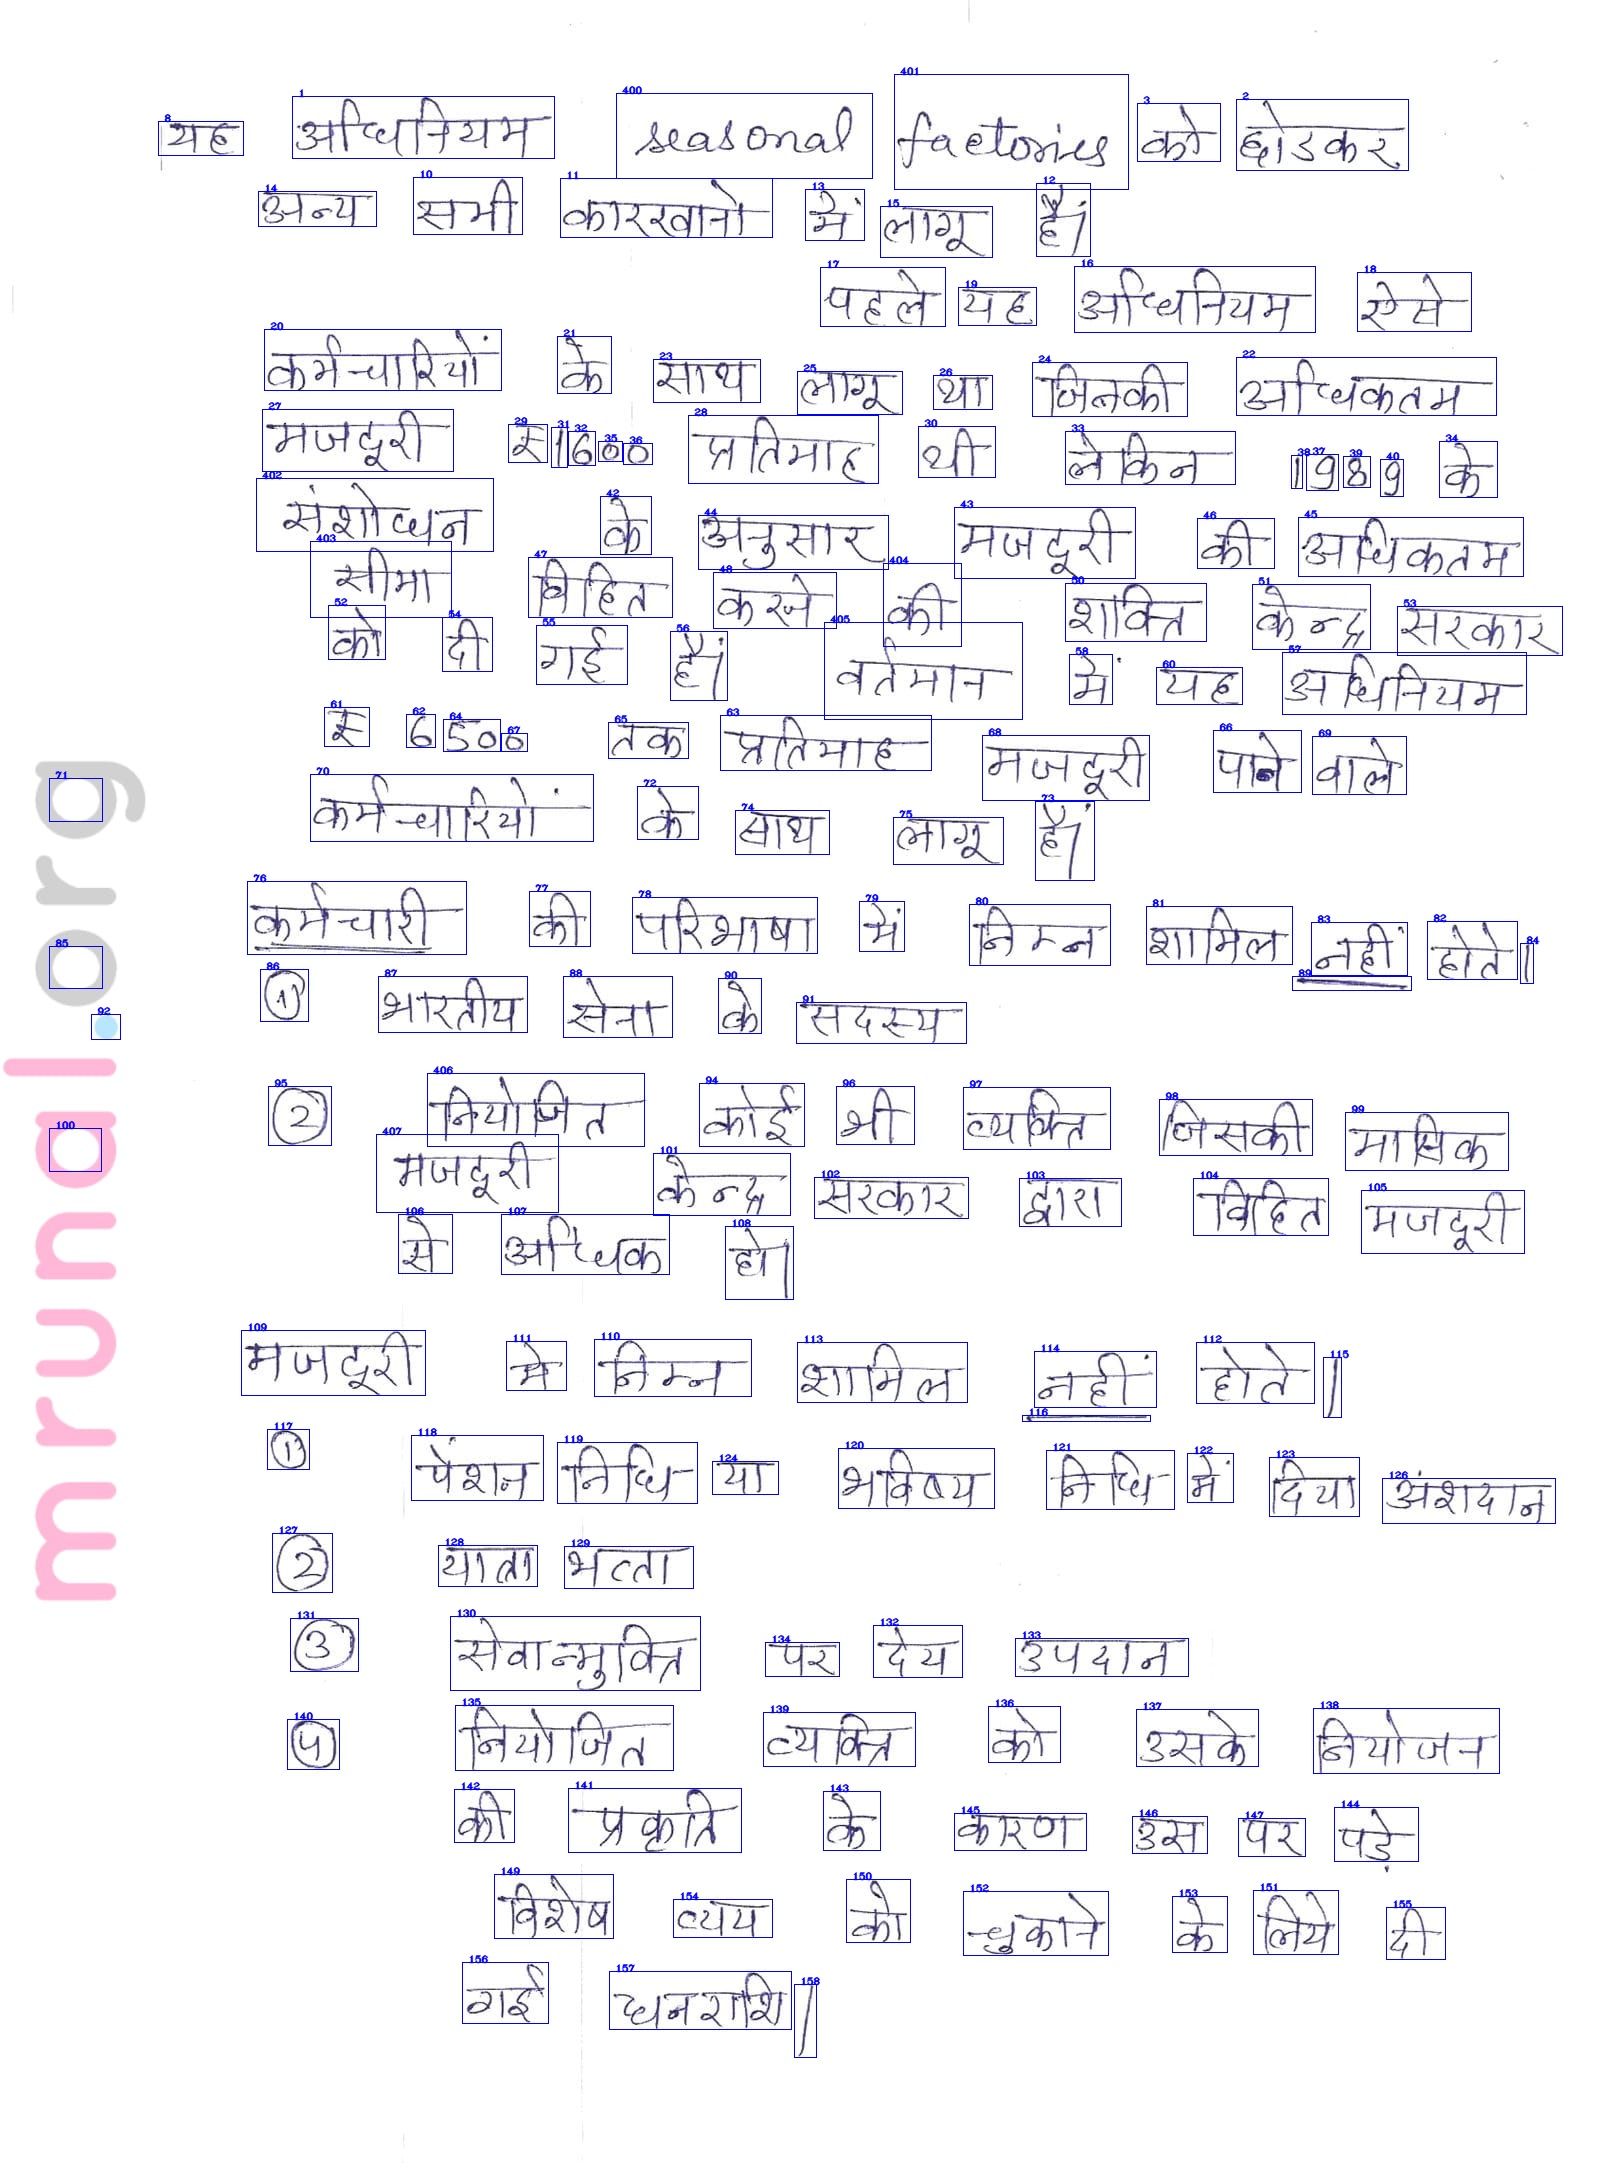 यह अधिनियम seasonal factories को छोडकर
अन्य सभी कारखानो में लागू हैं।
पहले यह अधिनियम ऐसे
कर्मचारियों के साथ लागू था जिनकी अधिकतम
मजदूरी रु 1600 प्रतिमाह थी लेकिन 1989 के
संशोधन के अनुसार मजदूरी की अधिकतम
सीमा विहित करने की शक्ति केन्द्र सरकार
को दी गई हैं। वर्तमान में यह अधिनियम
रु 6500 तक प्रतिमाह मजदूरी पाने वाले
कर्मचारियों के साथ लागू हैं।
कर्मचारी की परिभाषा में निम्न शामिल नहीं होते।
1 भारतीय सेना के सदस्य
2 नियोजित कोई भी व्यक्ति जिसकी मासिक
मजदूरी केन्द्र सरकार द्वारा विहित मजदूरी
से अधिक हो।
मजदूरी मे निम्न शामिल नहीं होते।
1 पेंशन निधि या भविष्य निधि में दिया अंशदान
2 यात्रा भत्ता
3 सेवान्मुक्ति पर देय उपदान
4 नियोजित व्यक्ति को उसके नियोजन
की प्रकृति के कारण उस पर पड़े
विशेष व्यय को चुकाने के लिये दी
गई धनराशि।
mrunal.org